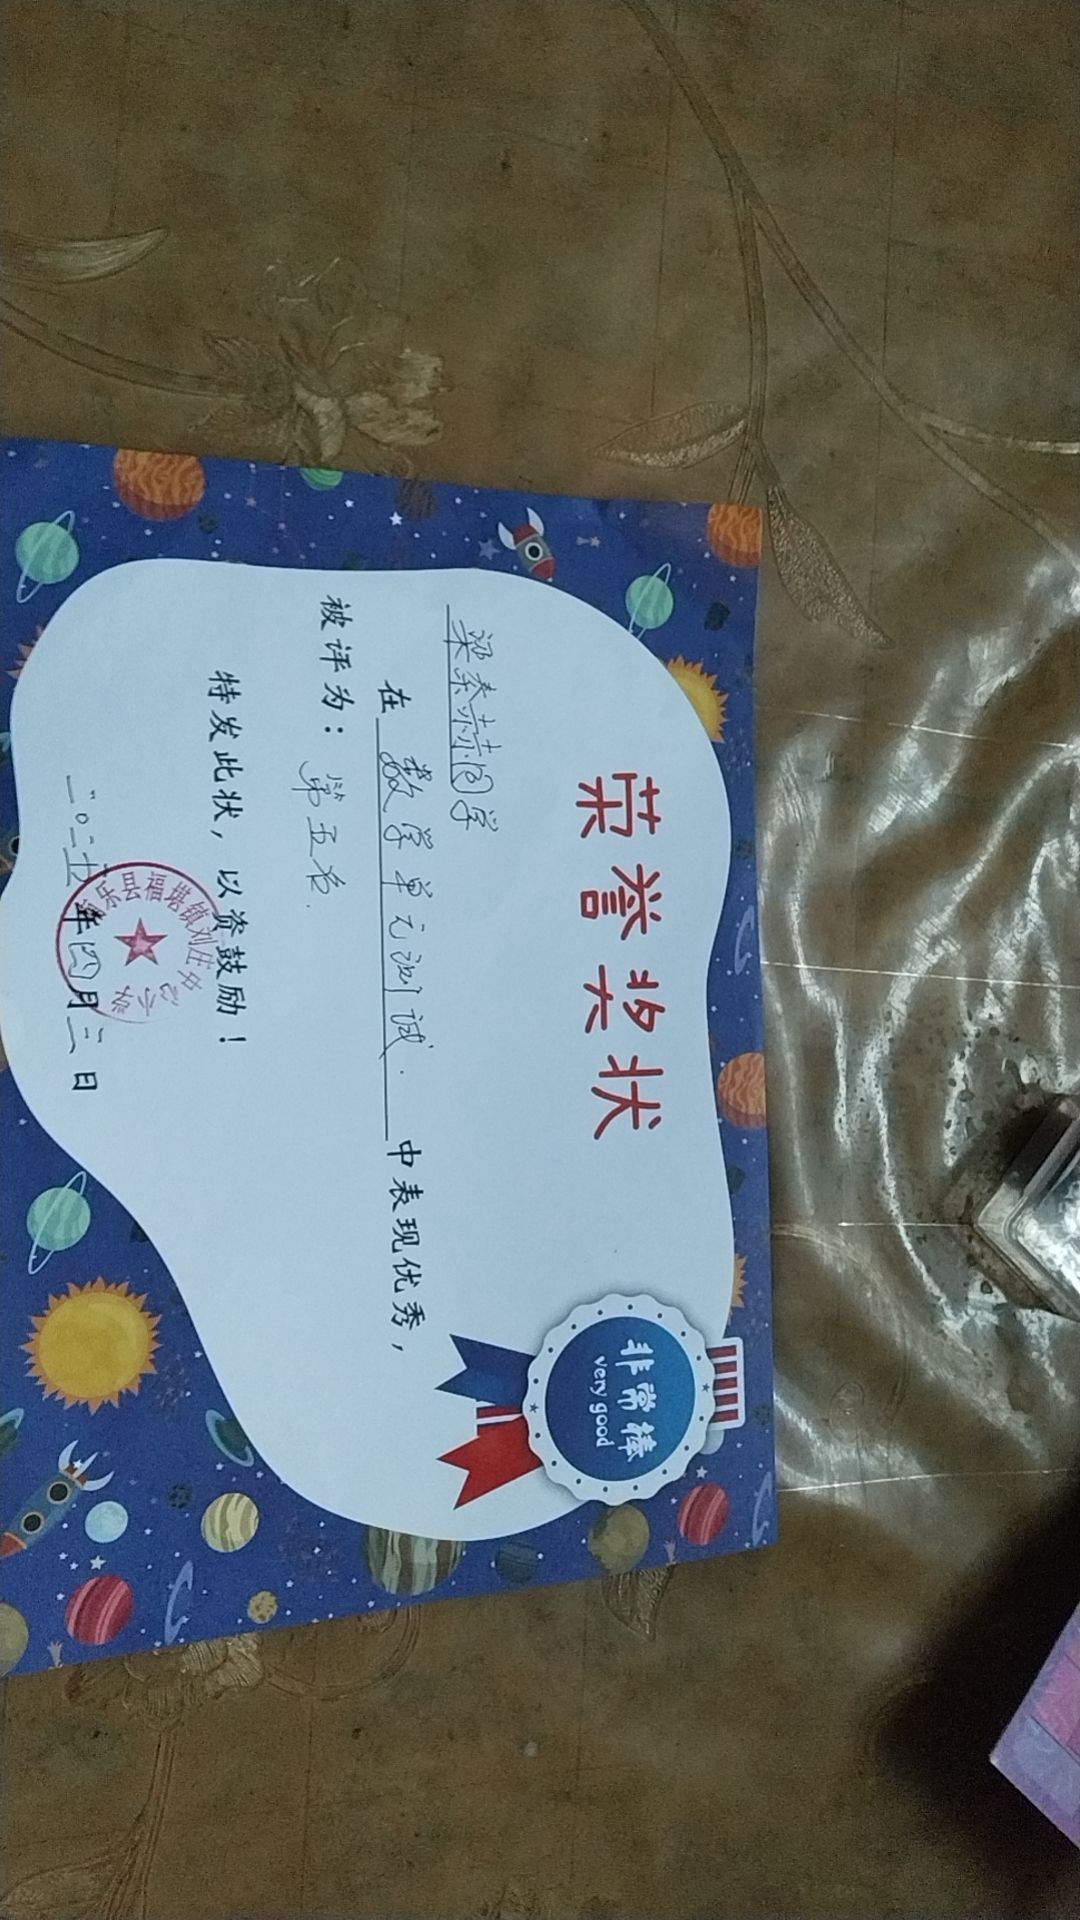 荣誉奖状
非常棒
very good
梁泰赫同学
在 数学单元测试. 中表现优秀，
被评为：第五名.
特发此状，以资鼓励！
二〇二五年四月三日
乐县福堪镇刘庄中心小学